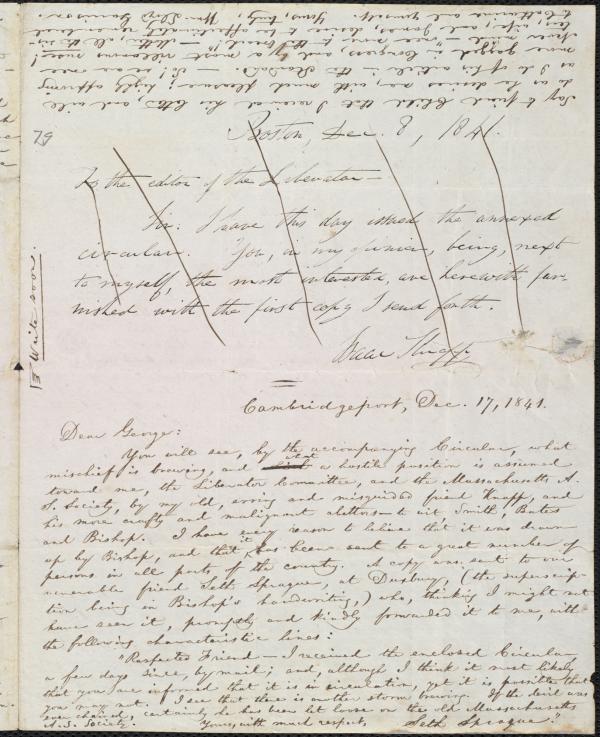 Say to friend Child that I received his letter, and will
do as he desires me, with much pleasure; highly approving
as I do of his article in the Standard.
more gagged in Congress, and by a most villanous
to Catharine and yourself. Yours, truly, Wm. Lloyd Garrison.
Boston, Dec. 8, 1841.
79
To the editor of the Liberator—
Sir: I have this day issued the annexed
circular. You, in my opinion, being, next
to myself, the most interested, are herewith fur-
nished with the first copy I send forth.
Isaac Knapp
Write soon.
Cambridgeport, Dec. 17, 1841.
Dear George:
You will see, by the accompanying Circular, what
mischief is brewing, and what a hostile position is assumed
toward me, the Liberator Committee, and the Massachusetts A.
S. Society, by my old, erring and misguided friend Knapp, and
his more crafty and malignant abettors—to wit Smith, Bates
and Bishop. I have every reason to believe that it was drawn
up by Bishop, and that it has been sent to a great number of
persons in all parts of the country. A copy was sent to our
venerable friend Seth Sprague, at Duxbury, (the superscrip-
tion being in Bishop's handwriting,) who, thinking I might not
have seen it, promptly and kindly forwarded it to me, with
the following characteristic lines:
"Respected Friend—I received the enclosed Circular
a few days since, by mail; and, although I think it most likely
that you are informed that it is in circulation, yet it is possible that
you may not. I see that there is another storm brewing. If the devil was
ever chained, certainly he has been let loose on the old Massachusetts
A. S. Society. Yours, with much respect, Seth Sprague."